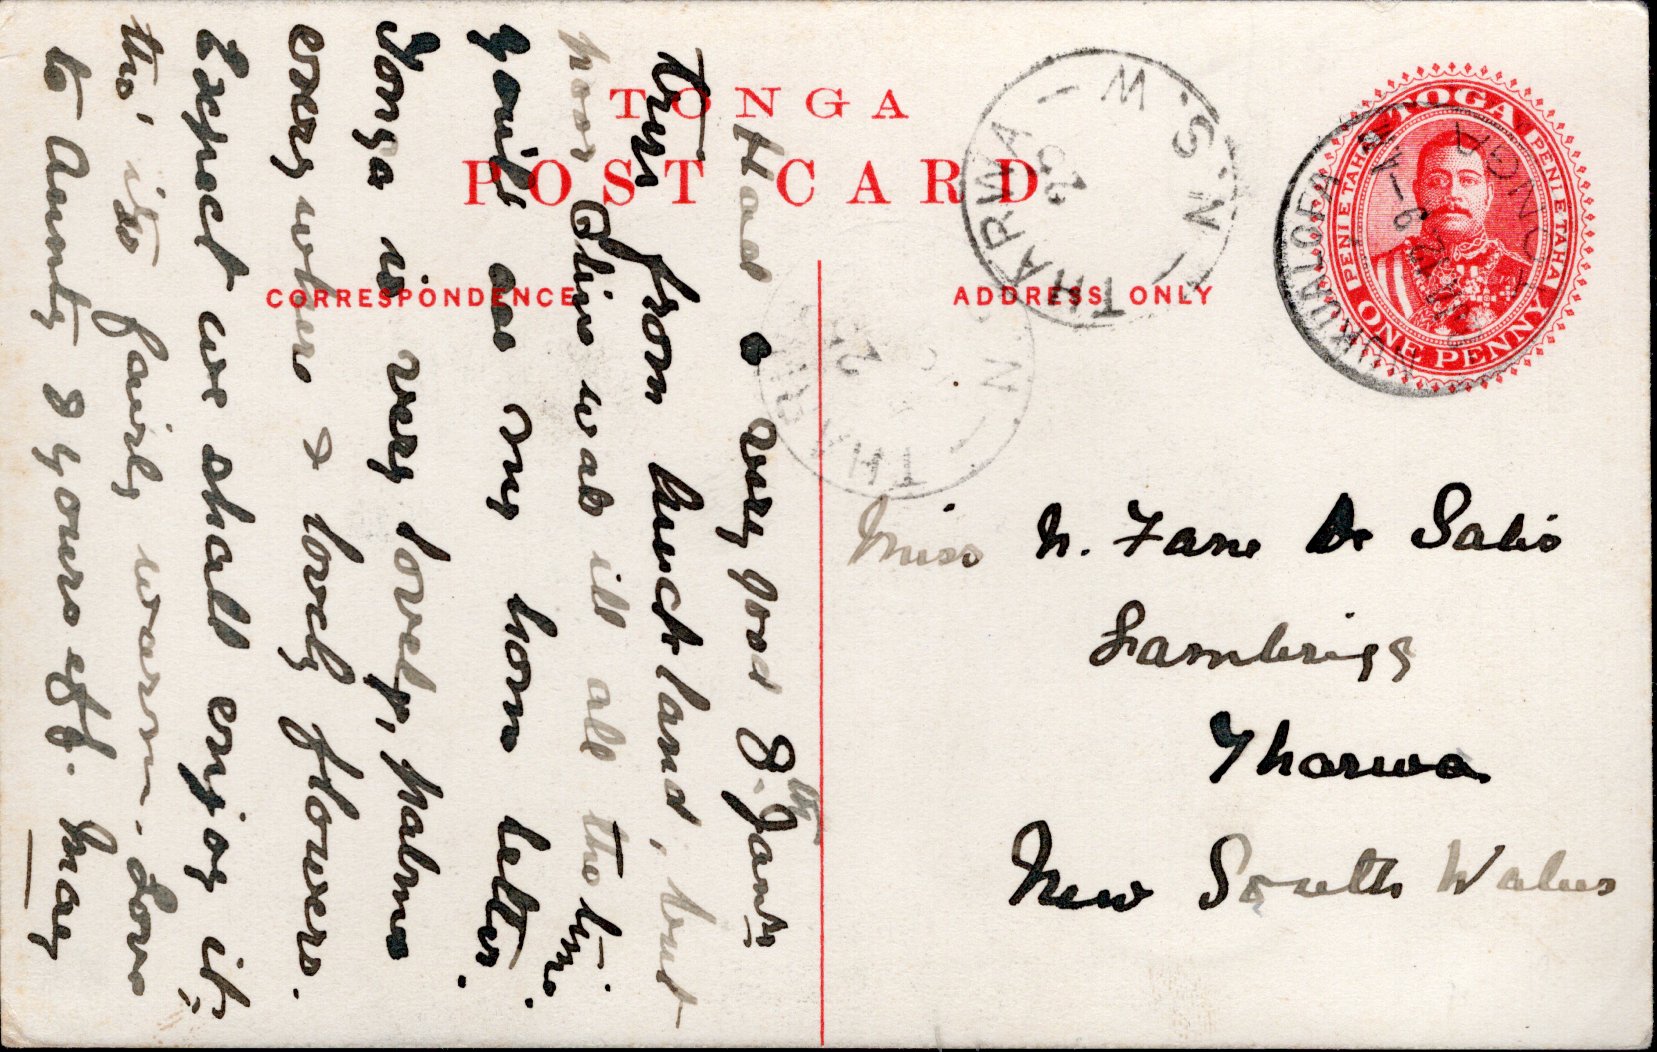 TONGA
POST CARD
CORRESPONDENCE
ADDRESS ONLY
TOGA
PENI E TAHA PENI E TAHA
ONE PENNY
NUKUALOFA
TONGA
THARWA
N.S.W
THARWA
N.S
8th Jany
Had a very good
trip from Auckland, but
poor Olive was ill all the time.
you'll see my home letter.
Tonga is very lovely, palms
everywhere & lovely flowers.
Expect we shall enjoy it,
tho' it is fairly warm. Love
to Aunty & yours aff. May
Miss N. Fane De Salis
Lambrigg
Tharwa
New South Wales